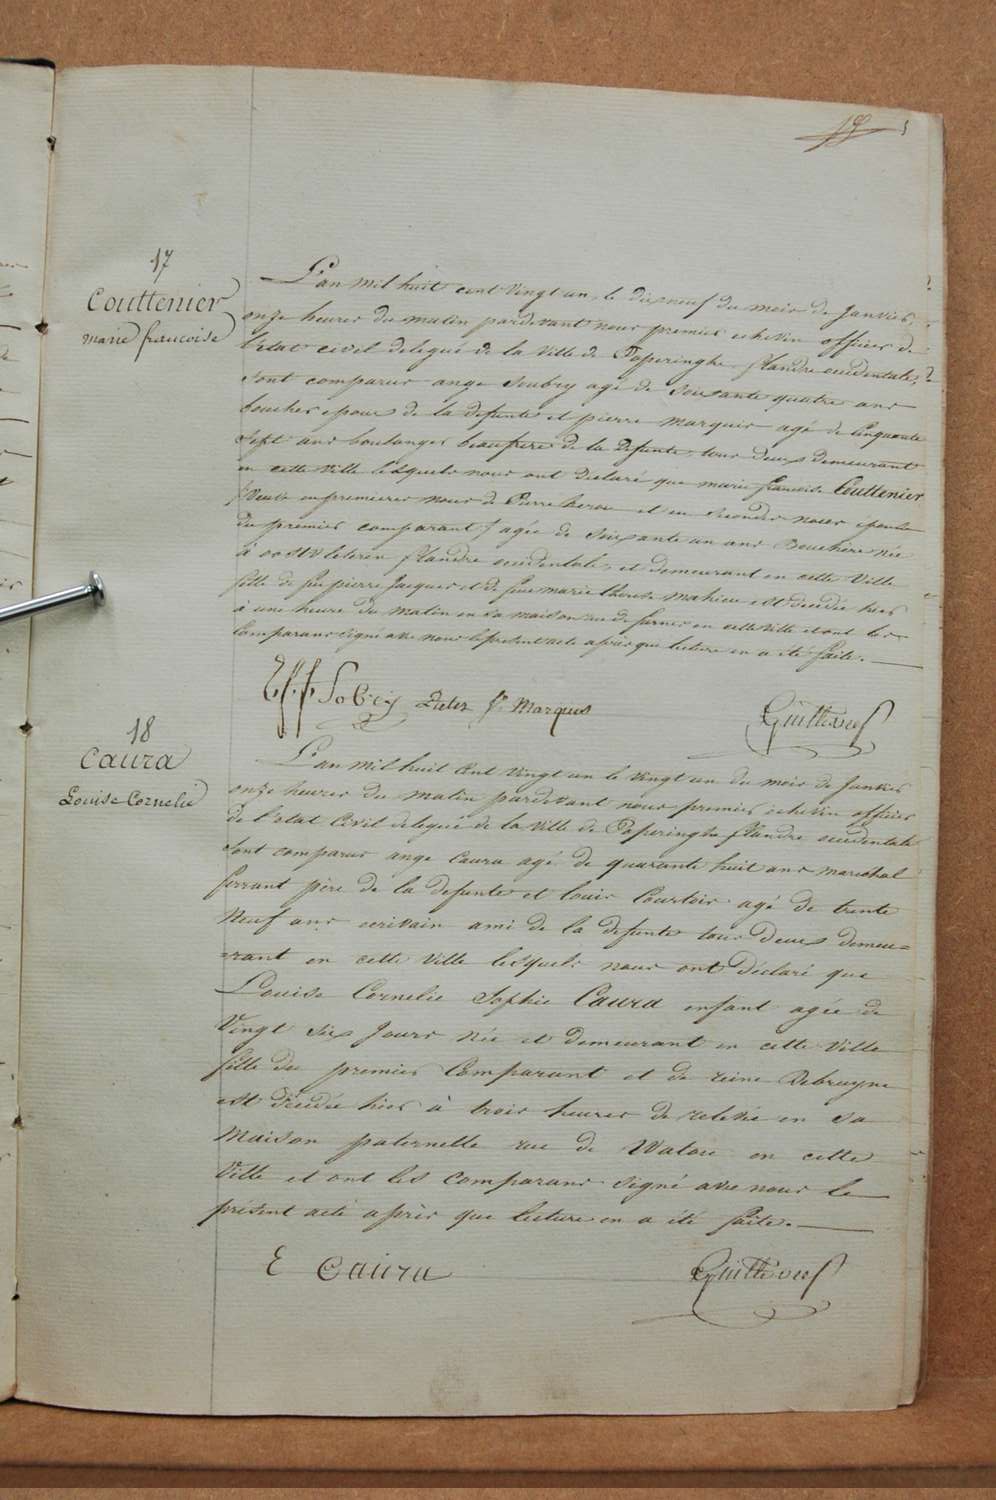 5
17
Couttenier
marie francoise
L'an mil huit cent vingt un, le dixneuf du mois de Janvier,
onze heures du matin pardevant nous premier echevin officier de
l'etat civil delegué de la Ville de Poperinghe flandre occidentale,
sont comparus ange Soubry agé de Soixante quatre ans
boucher epoux de la defunte et pierre marquis agé de Cinquante
Sept ans boulanger beaufrere de la Defunte, tous deux demeurant
en cette Ville lesquels nous ont Declaré que marie francoise Couttenier
Veuve en premieres noces de Pierre et en Secondes noces épouse
du premier comparant, agée de Soixante un ans Bouchère née
à oostvleteren flandre occidentale, et demeurant en cette Ville
fille de feu pierre Jacques et de feue marie therese mahieu est décédée hier
à une heure du matin en Sa maison rue de furnes en cette Ville et ont les
Comparans signé avec nous le présent acte après que lecture en a été faite.
Sobry Pieter f. Marques
18
Caura
Louise Cornelie
L'an mil huit Cent Vingt un le Vingt un du mois de Janvier
onze heures du matin pardevant nous premier echevin officier
de l'etat Civil delegué de la Ville de Poperinghe flandre occidentale
Sont comparus ange Caura agé de quarante huit ans maréchal
ferrant père de la defunte et louis Courtois agé de trente
Neuf ans ecrivain ami de la defunte tous Deux demeu=
=rant en cette Ville lesquels nous ont Déclaré que
Louise Cornelie Sophie Caura enfant agée de
Vingt Six Jours Née et demeurant en cette Ville
fille du premier Comparant et de reine Debruyne
est décédée hier à trois heures de relevée en Sa
Maison paternelle rue de Watou en cette
Ville et ont les Comparans Signé avec nous le
présent acte après que lecture en a été faite.
E Caura